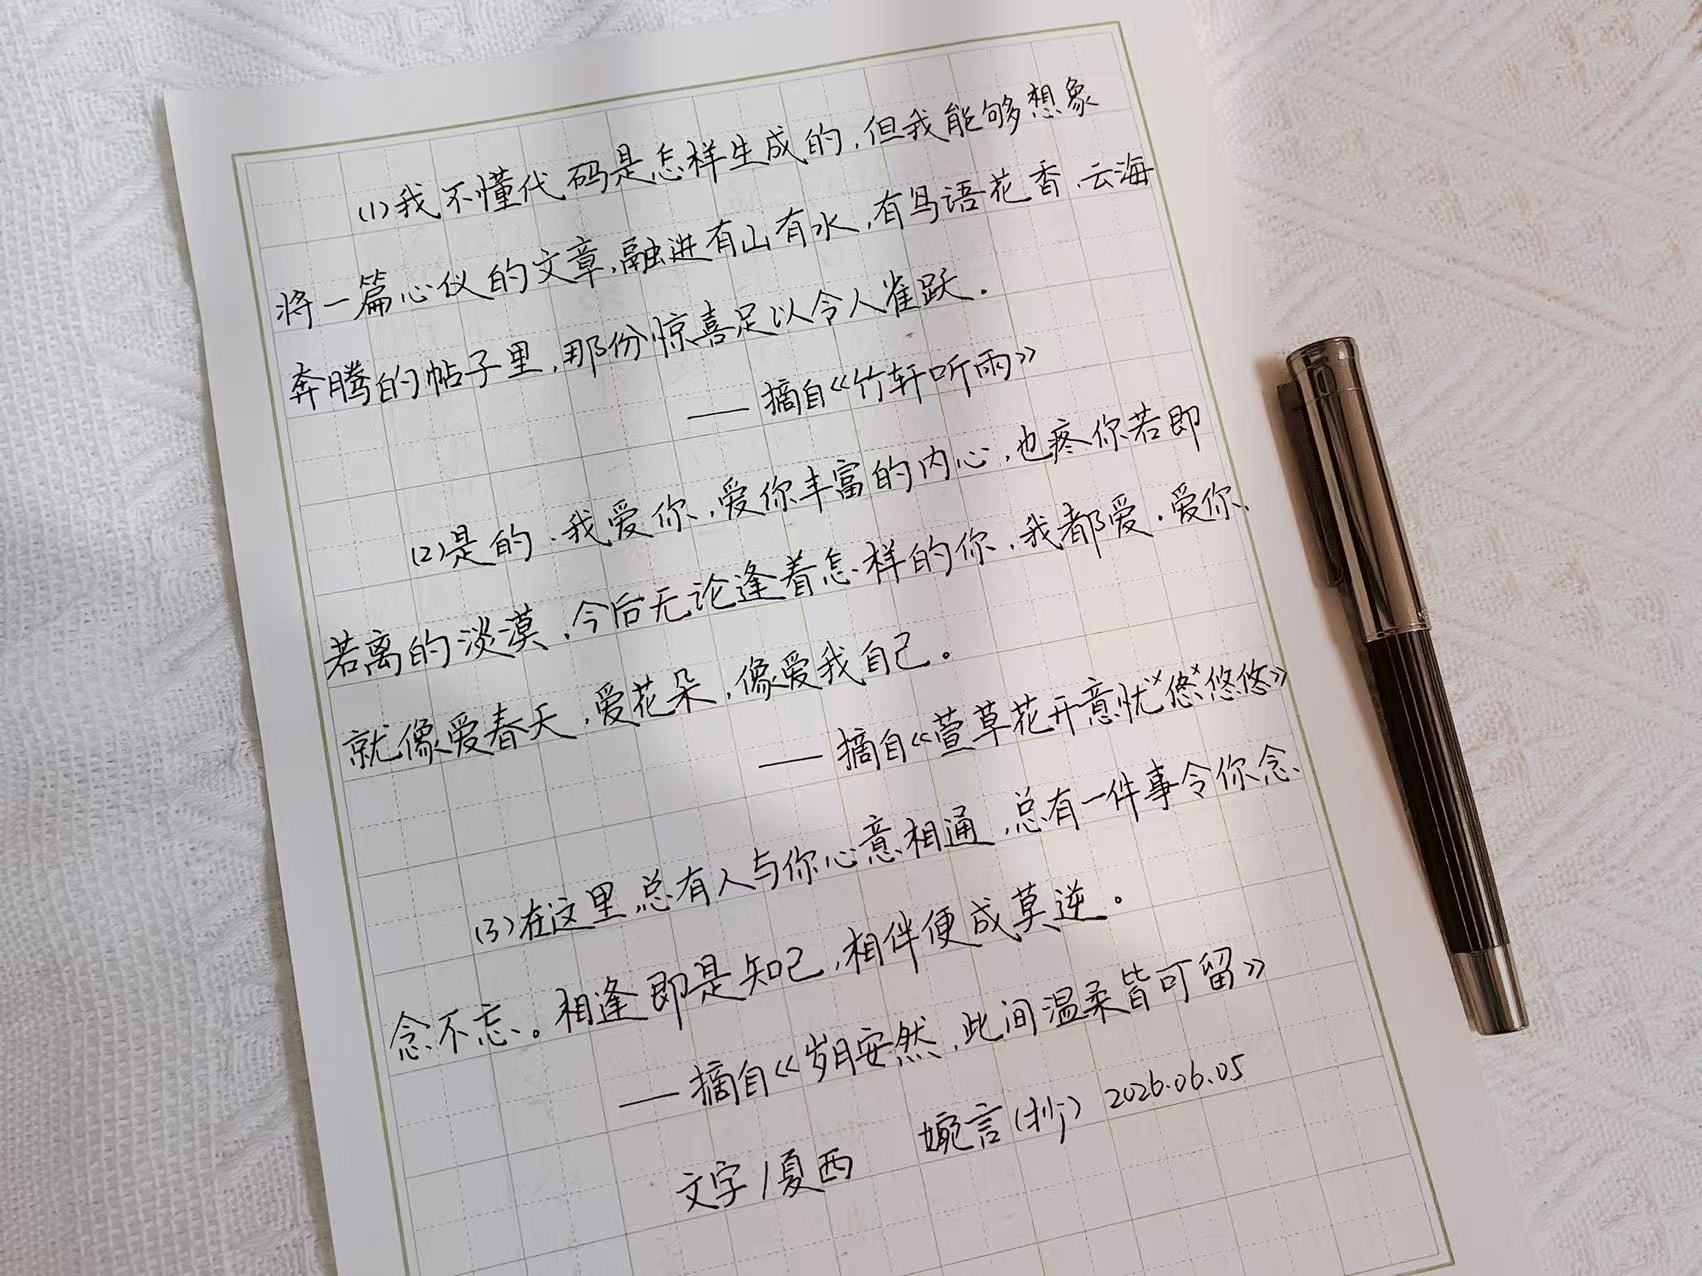 (1)我不懂代码是怎样生成的,但我能够想象
将一篇心仪的文章,融进有山有水,有鸟语花香、云海
奔腾的帖子里,那份惊喜足以令人雀跃.
——摘自《竹轩听雨》
(2)是的,我爱你,爱你丰富的内心,也疼你若即
若离的淡漠,今后无论逢着怎样的你,我都爱.爱你,
就像爱春天,爱花朵,像爱我自己。
——摘自《萱草花开意忧××悠悠悠》
(3)在这里,总有人与你心意相通,总有一件事令你念
念不忘。相逢即是知己,相伴便成莫逆。
——摘自《岁月安然,此间温柔皆可留》
文字/夏西 婉言(抄) 2026.06.05